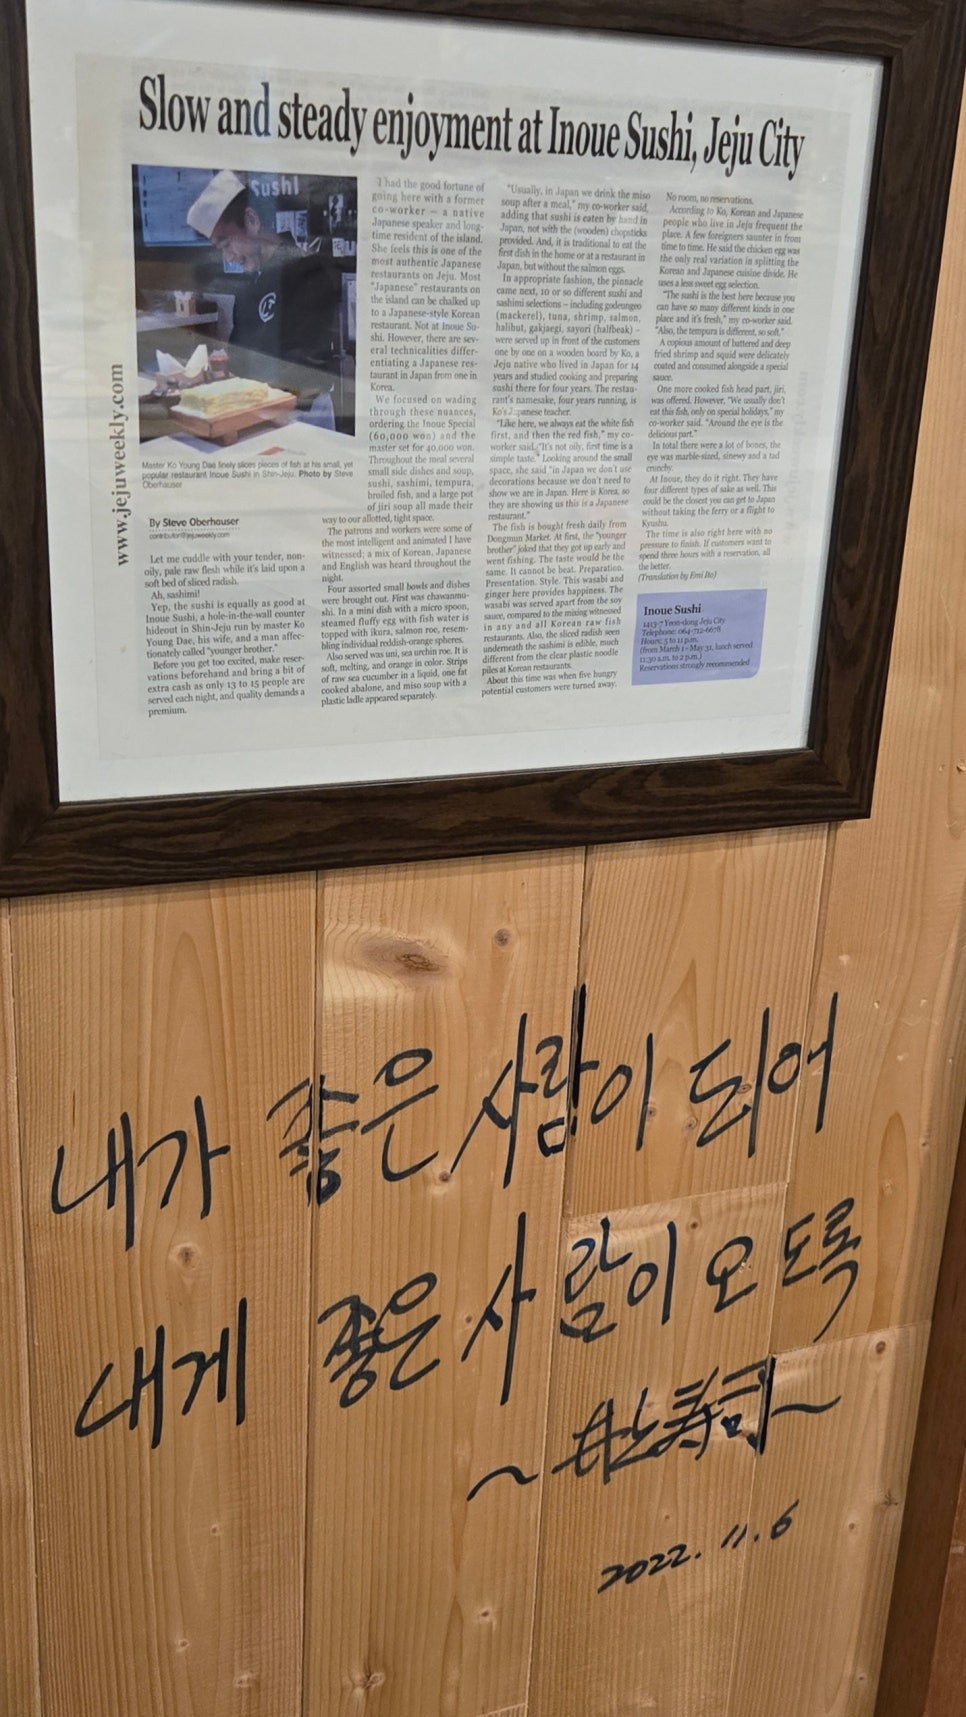 Slow and steady enjoyment at Inoue Sushi, Jeju City
www.jejuweekly.com
sushi
Master Ko Young Dae finely slices pieces of fish at his small, yet
popular restaurant Inoue Sushi in Shin-Jeju. Photo by Steve
Oberhauser
By Steve Oberhauser
contributor@jejuweekly.com
Let me cuddle with your tender, non-
oily, pale raw flesh while it's laid upon a
soft bed of sliced radish.
Ah, sashimi!
Yep, the sushi is equally as good at
Inoue Sushi, a hole-in-the-wall counter
hideout in Shin-Jeju run by master Ko
Young Dae, his wife, and a man affec-
tionately called "younger brother."
Before you get too excited, make reser-
vations beforehand and bring a bit of
extra cash as only 13 to 15 people are
served each night, and quality demands a
premium.
I had the good fortune of
going here with a former
co-worker — a native
Japanese speaker and long-
time resident of the island.
She feels this is one of the
most authentic Japanese
restaurants on Jeju. Most
"Japanese" restaurants on
the island can be chalked up
to a Japanese-style Korean
restaurant. Not at Inoue Su-
shi. However, there are sev-
eral technicalities differ-
entiating a Japanese res-
taurant in Japan from one in
Korea.
We focused on wading
through these nuances,
ordering the Inoue Special
(60,000 won) and the
master set for 40,000 won.
Throughout the meal several
small side dishes and soup,
sushi, sashimi, tempura,
broiled fish, and a large pot
of jiri soup all made their
way to our allotted, tight space.
The patrons and workers were some of
the most intelligent and animated I have
witnessed; a mix of Korean, Japanese
and English was heard throughout the
night.
Four assorted small bowls and dishes
were brought out. First was chawanmu-
shi. In a mini dish with a micro spoon,
steamed fluffy egg with fish water is
topped with ikura, salmon roe, resem-
bling individual reddish-orange spheres.
Also served was uni, sea urchin roe. It is
soft, melting, and orange in color. Strips
of raw sea cucumber in a liquid, one fat
cooked abalone, and miso soup with a
plastic ladle appeared separately.
"Usually, in Japan we drink the miso
soup after a meal," my co-worker said,
adding that sushi is eaten by hand in
Japan, not with the (wooden) chopsticks
provided. And, it is traditional to eat the
first dish in the home or at a restaurant in
Japan, but without the salmon eggs.
In appropriate fashion, the pinnacle
came next, 10 or so different sushi and
sashimi selections – including godeungeo
(mackerel), tuna, shrimp, salmon,
halibut, gakjaegi, sayori (halfbeak) –
were served up in front of the customers
one by one on a wooden board by Ko, a
Jeju native who lived in Japan for 14
years and studied cooking and preparing
sushi there for four years. The restau-
rant's namesake, four years running, is
Ko's Japanese teacher.
"Like here, we always eat the white fish
first, and then the red fish," my co-
worker said. "It's not oily, first time is a
simple taste." Looking around the small
space, she said "in Japan we don't use
decorations because we don't need to
show we are in Japan. Here is Korea, so
they are showing us this is a Japanese
restaurant."
The fish is bought fresh daily from
Dongmun Market. At first, the "younger
brother" joked that they got up early and
went fishing. The taste would be the
same. It cannot be beat. Preparation.
Presentation. Style. This wasabi and
ginger here provides happiness. The
wasabi was served apart from the soy
sauce, compared to the mixing witnessed
in any and all Korean raw fish
restaurants. Also, the sliced radish seen
underneath the sashimi is edible, much
different from the clear plastic noodle
piles at Korean restaurants.
About this time was when five hungry
potential customers were turned away.
No room, no reservations.
According to Ko, Korean and Japanese
people who live in Jeju frequent the
place. A few foreigners saunter in from
time to time. He said the chicken egg was
the only real variation in splitting the
Korean and Japanese cuisine divide. He
uses a less sweet egg selection.
"The sushi is the best here because you
can have so many different kinds in one
place and it's fresh," my co-worker said.
"Also, the tempura is different, so soft."
A copious amount of battered and deep
fried shrimp and squid were delicately
coated and consumed alongside a special
sauce.
One more cooked fish head part, jiri,
was offered. However, "We usually don't
eat this fish, only on special holidays," my
co-worker said. "Around the eye is the
delicious part."
In total there were a lot of bones, the
eye was marble-sized, sinewy and a tad
crunchy.
At Inoue, they do it right. They have
four different types of sake as well. This
could be the closest you can get to Japan
without taking the ferry or a flight to
Kyushu.
The time is also right here with no
pressure to finish. If customers want to
spend three hours with a reservation, all
the better.
(Translation by Emi Ito)
Inoue Sushi
1413-7 Yeon-dong Jeju City
Telephone: 064-712-6678
Hours: 5 to 11 p.m.
(from March 1 - May 31, lunch served
11:30 a.m. to 2 p.m.)
Reservations strongly recommended
내가 좋은 사람이 되어
내게 좋은 사람이 오도록
2022. 11. 6